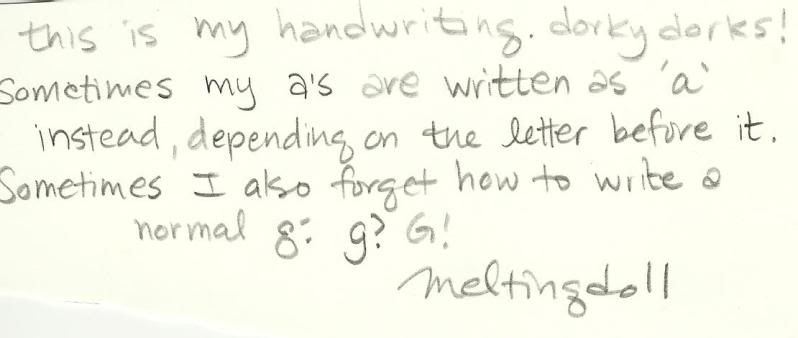 this is my handwriting. dorky dorks!
Sometimes my a's are written as 'a'
instead, depending on the letter before it.
Sometimes I also forget how to write a
normal g: g? G!
meltingdoll